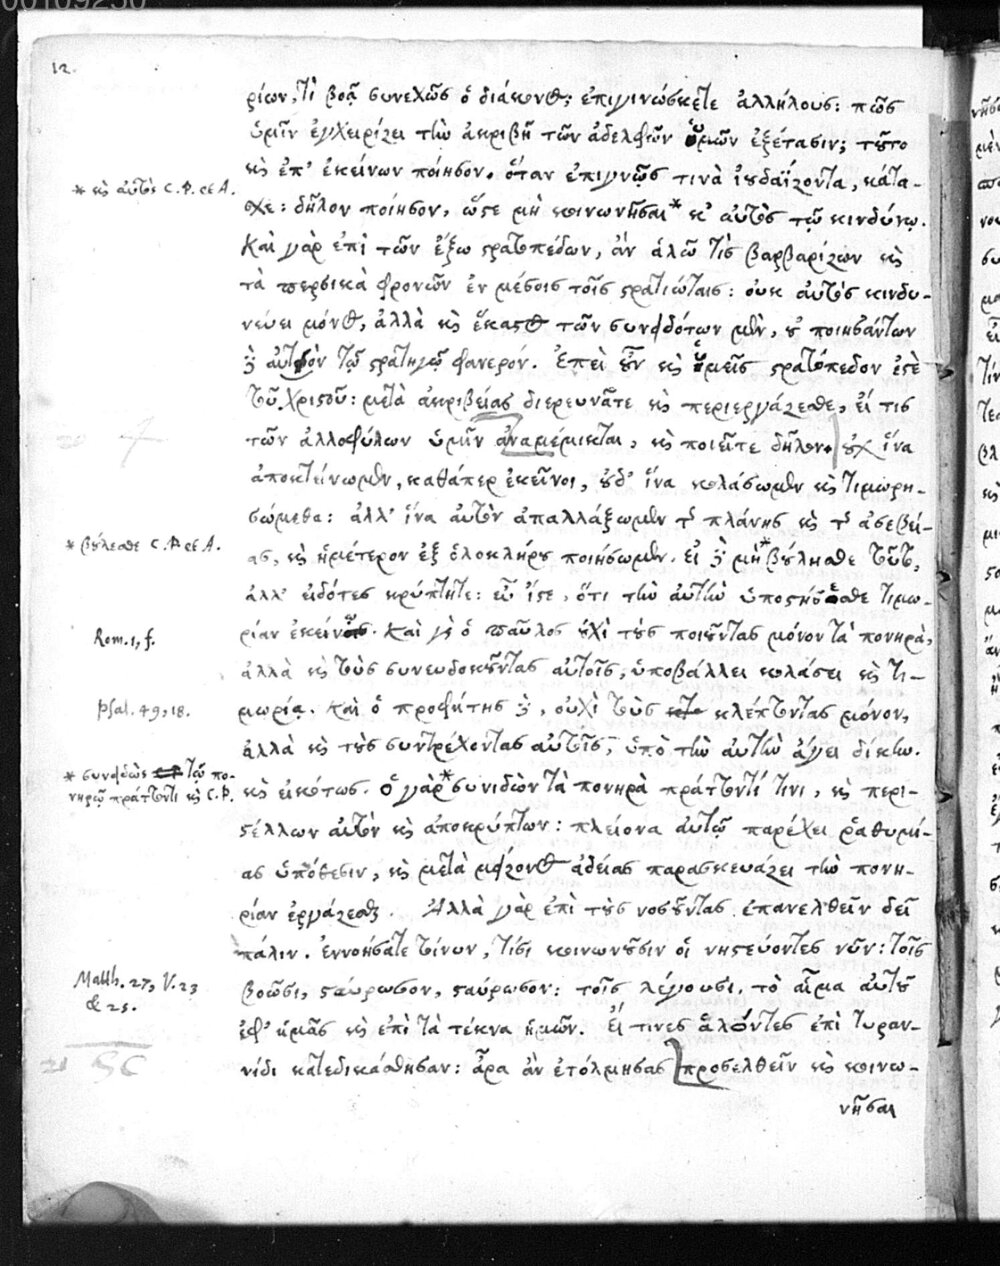 00109250
12.
ρίων, τί βοᾷ συνεχῶς ὁ διάκονος; ἐπιγινώσκετε ἀλλήλους: πῶς
ὑμῖν ἐγχειρίζει τὴν ἀκριβῆ τῶν ἀδελφῶν ὑμῶν ἐξέτασιν; τοῦτο
κὶ ἐπ' ἐκείνων ποίησον. ὅταν ἐπιγνῷς τινὰ ἰουδαΐζοντα, κάτα-
* κὶ αὐτὸς C.P. et A.
σχε: δῆλον ποίησον, ὥστε μὴ κοινωνῆσαι* κ' αὐτὸς τῷ κινδύνῳ.
Καὶ γὰρ ἐπὶ τῶν ἔξω στρατοπέδων, ἂν ἁλῷ τὶς βαρβαρίζων κὶ
τὰ περσικὰ φρονῶν ἐν μέσοις τοῖς στρατιώταις: οὐκ αὐτὸς κινδυ-
νεύει μόνος, ἀλλὰ κὶ ἕκαστος τῶν συνειδότων μὲν, οὐ ποιησάντων
δὲ αὐτὸν τῷ στρατηγῷ φανερόν. Ἐπεὶ οὖν κὶ ὑμεῖς στρατόπεδον ἐστὲ
τοῦ Χριστοῦ: μετὰ ἀκριβείας διερευνᾶτε κὶ περιεργάζεσθε, εἴ τις
τῶν ἀλλοφύλων ὑμῖν ἀναμέμικται, κὶ ποιεῖτε δῆλον. οὐχ ἵνα
ἀποκτείνωμεν, καθάπερ ἐκεῖνοι, οὐδ' ἵνα κολάσωμεν κὶ τιμωρη-
σώμεθα: ἀλλ' ἵνα αὐτὸν ἀπαλλάξωμεν τῆς πλάνης κὶ τῆς ἀσεβεί-
* βούλεσθε C.P. et A.
ας, κὶ ἡμέτερον ἐξ ὁλοκλήρου ποιήσωμεν. εἰ δὲ μὴ* βούλησθε τοῦτο,
ἀλλ' εἰδότες κρύπτητε: εὖ ἴστε, ὅτι τὴν αὐτὴν ὑποστήσεσθε τιμω-
Rom. 1, f.
ρίαν ἐκείνοις. Καὶ γὰρ ὁ Παῦλος οὐχὶ τοὺς ποιοῦντας μόνον τὰ πονηρὰ,
ἀλλὰ κὶ τοὺς συνευδοκοῦντας αὐτοῖς, ὑποβάλλει κολάσει κὶ τι-
Psal. 49, 18.
μωρίᾳ. Καὶ ὁ προφήτης δὲ, οὐχὶ τοὺς κλέπτοντας μόνον,
ἀλλὰ κὶ τοὺς συντρέχοντας αὐτοῖς, ὑπὸ τὴν αὐτὴν ἄγει δίκην.
* συνειδὼς τῷ πο-
νηρῷ πράττοντι κὶ C.P.
κὶ εἰκότως. Ὁ γὰρ* συνιδὼν τὰ πονηρὰ πράττοντί τινι, κὶ περι-
στέλλων αὐτὸν κὶ ἀποκρύπτων: πλείονα αὐτῷ παρέχει ῥαθυμί-
ας ὑπόθεσιν, κὶ μετὰ μείζονος ἀδείας παρασκευάζει τὴν πονη-
ρίαν ἐργάζεσθαι. Ἀλλὰ γὰρ ἐπὶ τοὺς νοσοῦντας ἐπανελθεῖν δεῖ
πάλιν. Ἐννοήσατε τοίνυν, τίσι κοινωνοῦσιν οἱ νηστεύοντες νῦν: τοῖς
Matth. 27, V. 23
& 25.
βοῶσι, σταύρωσον, σταύρωσον: τοῖς λέγουσι, τὸ αἷμα αὐτοῦ
ἐφ' ἡμᾶς κὶ ἐπὶ τὰ τέκνα ἡμῶν. Εἴ τινες ἁλόντες ἐπὶ τυραν-
νίδι κατεδικάσθησαν: ἆρα ἂν ἐτόλμησας προσελθεῖν κὶ κοινω-
νῆσαι